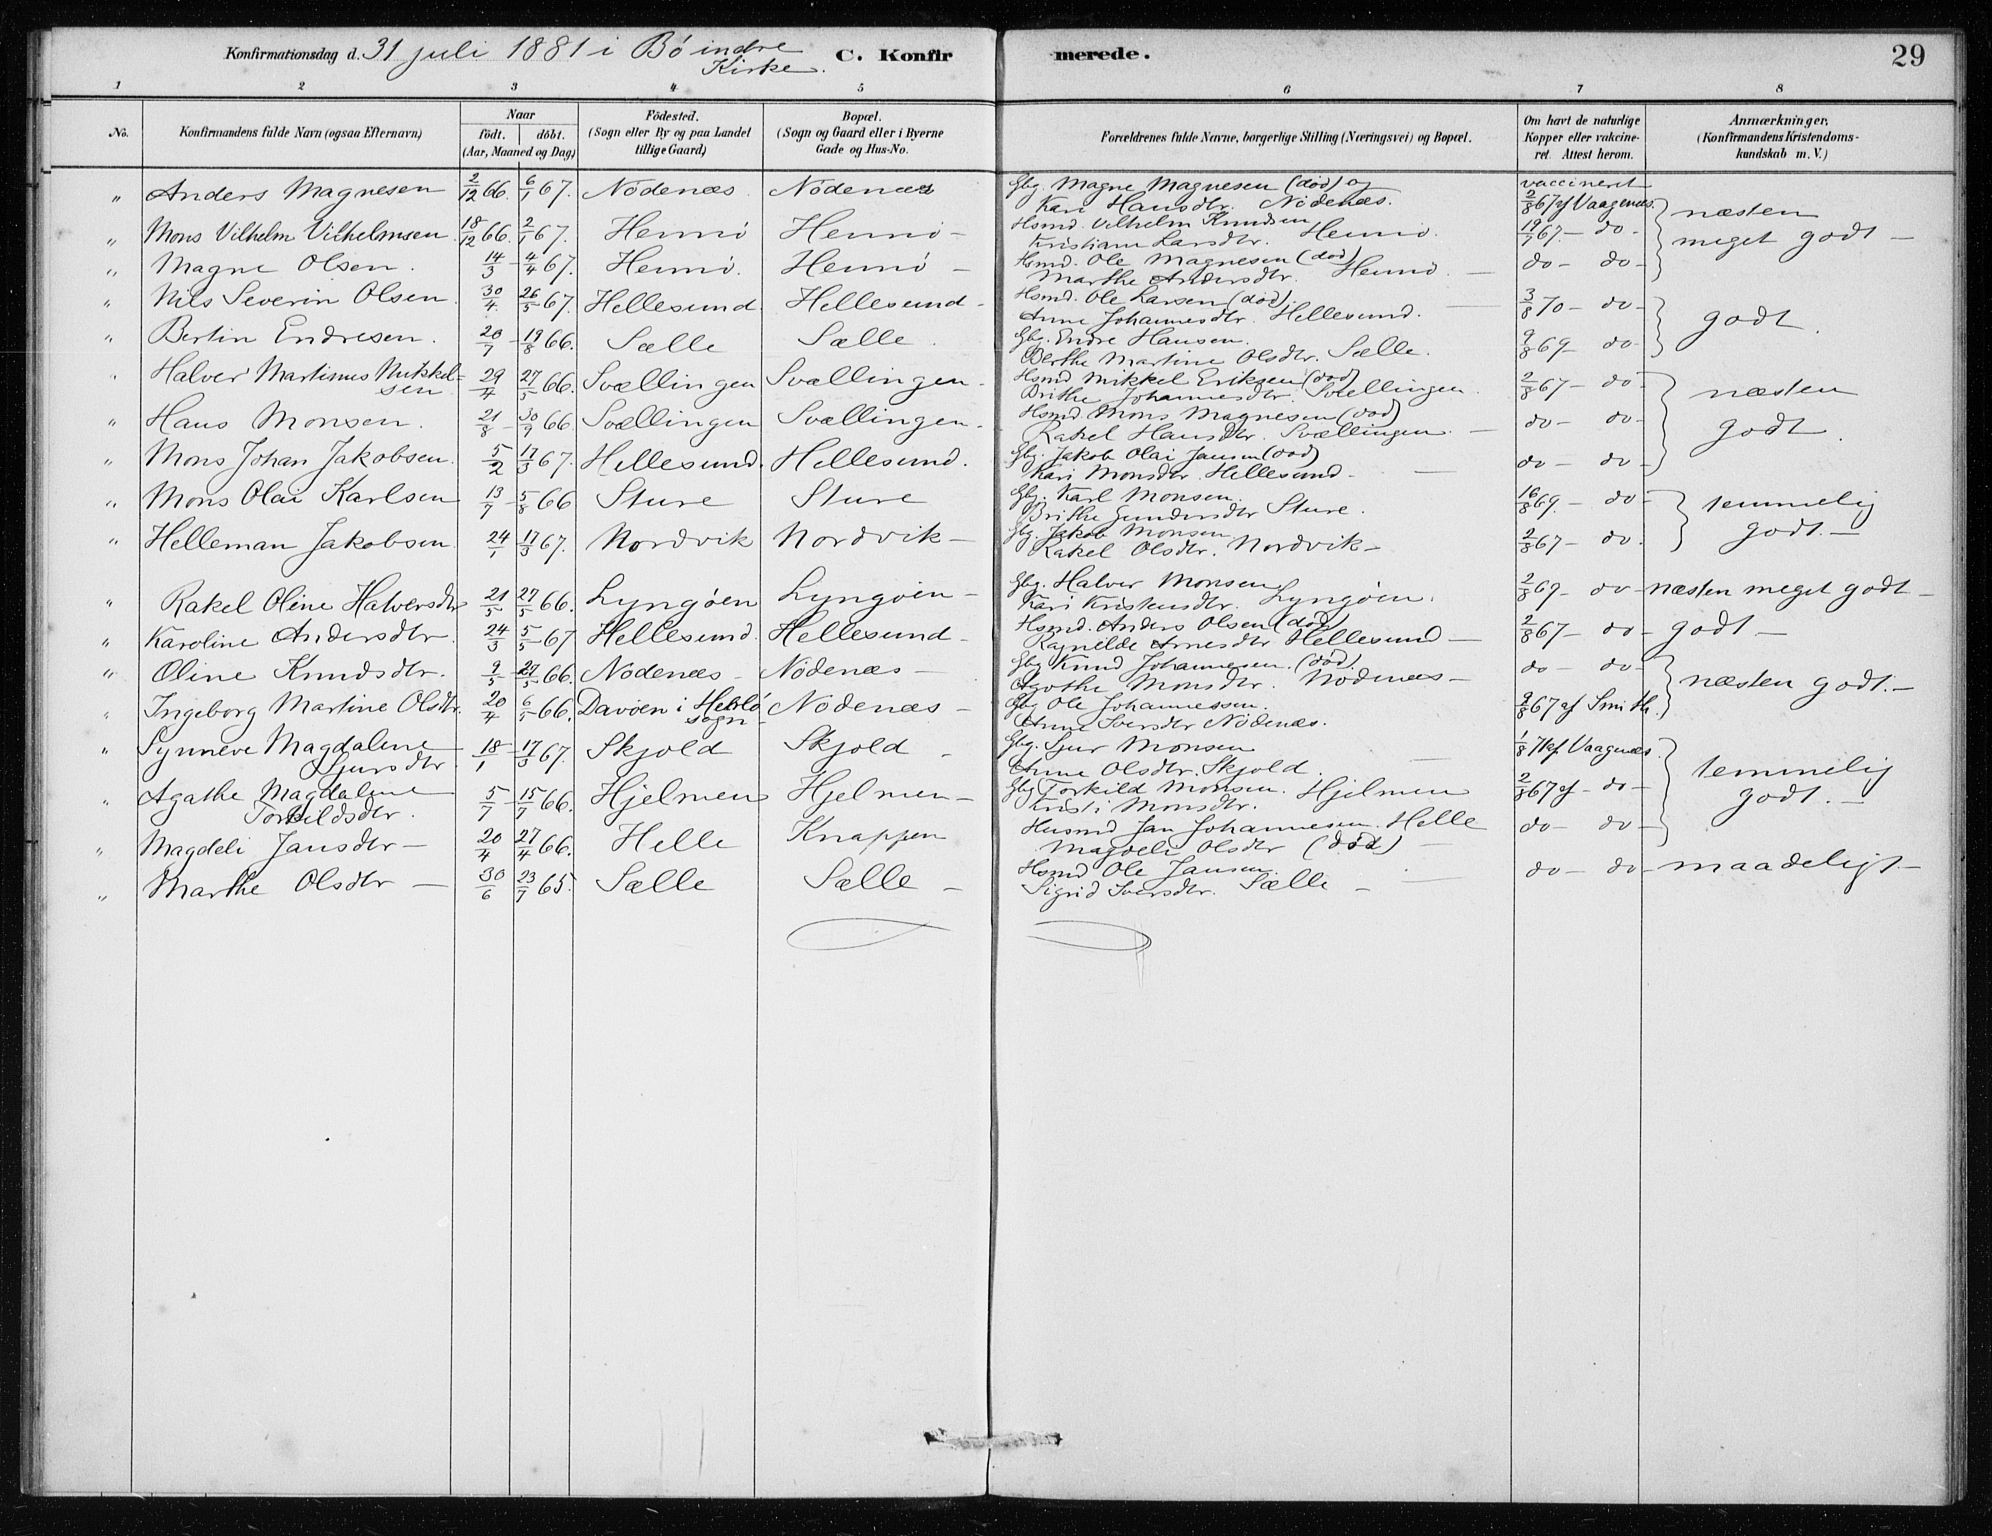 Konfirmationsdag d. 31 juli 1881 i Bø indre Kirke. C. Konfirmerede. 29
1 2 3 4 5 6 7 8
No. Konfirmandens fulde Navn (ogsaa Efternavn) Naar født. døbt. (Aar, Maaned og Dag) Fødested. (Sogn eller By og paa Landet tillige Gaard) Bopæl. (Sogn og Gaard eller i Byerne Gade og Hus-No. Forældrenes fulde Navne, borgerlige Stilling (Næringsvei) og Bopæl. Om havt de naturlige Kopper eller vakcineret. Attest herom. Anmærkninger, (Konfirmandens Kristendomskundskab m. V.)
" Anders Magnesen 2/12 66. 6/1 67. Nødenæs. Nødenæs Gbg. Magne Magnesen (død) og Kari Hansdtr. Nødenæs. vaccineret 2/8 67 af Vaagenæs.
" Mons Vilhelm Vilhelmsen 18/12 66. 2/1 67. Hennø Hennø - Hsmd. Vilhelm Knudsen Kristiane Larsdtr. Hennø. 19/7 67. - do - næsten meget godt -
" Magne Olsen. 14/3 - 4/4 67. Hennø. Hennø - Hsmd. Ole Magnesen (død) Marthe Andersdtr. Hennø. - do - do -
" Nils Severin Olsen. 30/4 - 26/5 67. Hellesund Hellesund - Hsmd. Ole Larsen (død). Anne Johannesdtr. Hellesund. 3/8 70 - do - godt.
" Bertin Endresen. 20/7 - 19/8 66. Sælle Sælle. Gbg. Endre Hansen. Berthe Martine Olsdtr. Sælle. 9/8 69 - do -
" Halver Martinus Mikkelsen 29/4 - 27/5 66. Svællingen Svællingen - Hsmd Mikkel Eriksen (død) Brithe Johannesdtr. Svællingen. 2/8 67 - do - næsten godt.
" Hans Monsen. 21/8 - 30/9 66. Svællingen Svællingen - Hsmd. Mons Magnesen (død) Rakel Hansdtr. Svællingen. - do - do -
" Mons Johan Jakobsen. 5/2 17/3 67. Hellesund. Hellesund. Gbg. Jakob Olai Jansen (død) Kari Monsdtr. Hellesund - do - do -
" Mons Olai Karlsen 13/7 - 5/8 66 Sture Sture Gbg. Karl Monsen. Brithe Gundersdtr Sture. 16/8 69. - do - temmelig godt. -
" Helleman Jakobsen 24/1 - 17/3 67. Nordvik Nordvik - Gbg. Jakob Monsen Rakel Olsdtr. Nordvik - 2/8 67 - do.
" Rakel Oline Halversdtr 21/5 27/5 66. Lyngøen Lyngøen - Gbg. Halver Monsen Kari Kristensdtr. Lyngøen. 2/8 69 - do - næsten meget godt -
" Karoline Andersdtr. 24/3 - 5/5 67 Hellesund. Hellesund - Hsmd. Anders Olsen (død) Ragnilde Arnesdtr Hellesund - 2/8 67 - do - godt -
" Oline Knudsdtr. 9/5 - 27/5 66. Nødenæs - Nødenæs - Gbg Knud Johannesen. (død. Agathe Monsdtr. Nødenæs - do - do - næsten godt. -
" Ingeborg Martine Olsdtr. 20/4 6/5 66. Davøen i Herlø sogn - Nødenæs - Gbg Ole Johannessen. Anne Iversdtr Nødenæs. 9/8 67 af Smith.
" Synneve Magdalene Sjursdtr 18/1 - 17/3 67. Skjold Skjold - Gbg. Sjur Monsen Anne Olsdtr. Skjold. 1/8 71 af Vaagenæs temmelig godt. -
" Agathe Magdalene Torkildsdtr. 5/7 - 15/7 66. Hjelmen Hjelmen - Gbg Torkild Monsen. Hjelmen Kristi Monsdtr. 2/8 67 af - do -
" Magdeli Jansdtr - 20/4 27/4 66. Helle Knappen Husmd Jan Johannesen. Helle Magdeli Olsdtr (død) - do - do -
" Marthe Olsdtr - 30/6 23/7 65. Sælle Sælle - Hsmd Ole Jansen. Sigrid Iversdtr. Sælle - do - do - maadeligt. -